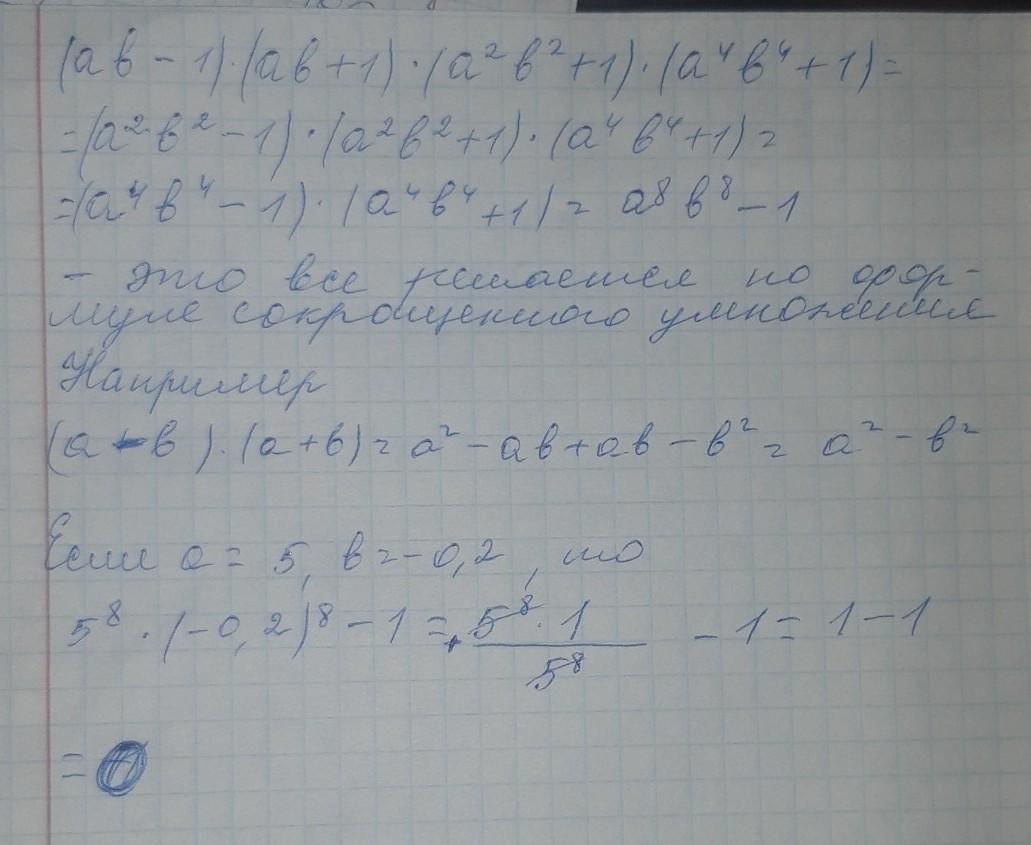 (ab - 1)·(ab + 1)·(a²b² + 1)·(a⁴b⁴ + 1) =
= (a²b² - 1)·(a²b² + 1)·(a⁴b⁴ + 1) =
= (a⁴b⁴ - 1)·(a⁴b⁴ + 1) = a⁸b⁸ - 1
- это все решается по фор-
муле сокращенного умножения
Например
(a - b)·(a + b) = a² - ab + ab - b² = a² - b²
Если a = 5, b = -0,2, то
5⁸·(-0,2)⁸ - 1 = 5⁸·1/5⁸ - 1 = 1 - 1
= 0